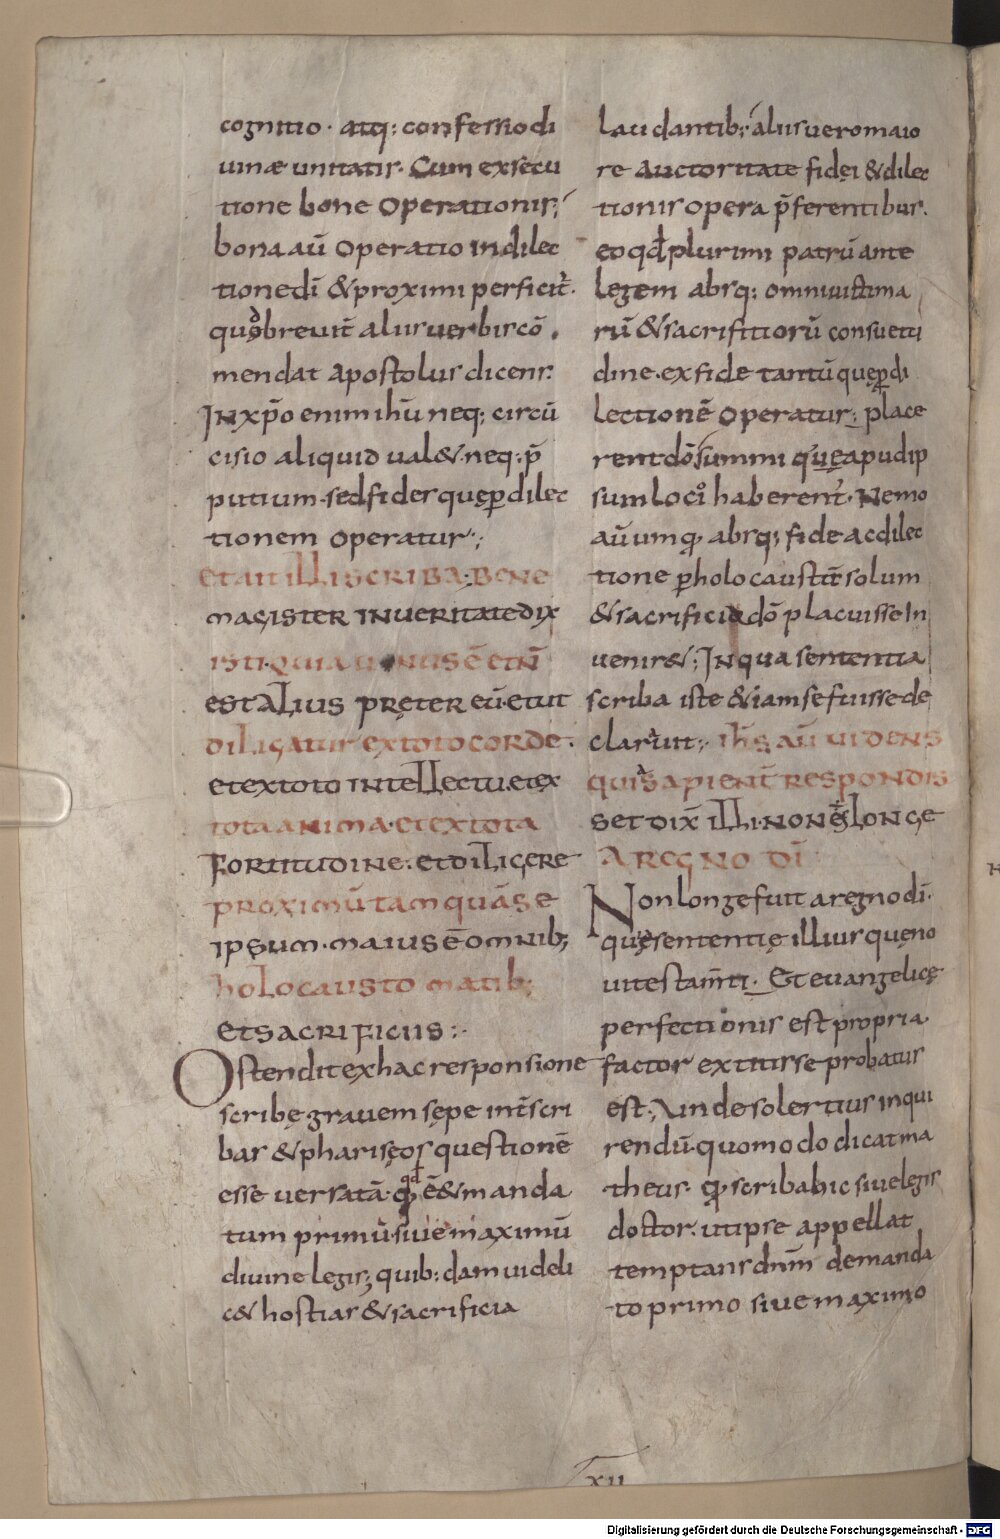 cognitio · atq: confessio di
uinæ unitatis. Cum exsecu
tione bone operationis;
bona aū operatio in dilec
tione dī & proximi perficit̄.
quod breuit̄ aliis uerbis cō
mendat apostolus dicens.
IN xp̄o enim ihū neq: circū
cisio aliquid ual& neq: p̄
putium. sed fides quę ꝑ dilec
tionem operatur;
et ait illi scriba. bene
magister in ueritate dix
isti. quia unus ē et n̄
est alius pręter eū. et ut
diligatur ex toto corde.
et ex toto intellectu. et ex
tota anima. et ex tota
fortitudine. et diligere
proximū tamquā se
ipsum. maius ē omnib;
holocaustomatib;
et sacrificiis:.
Ostendit ex hac responsione
scribę grauem sępe int̄ scri
bas & phariseos questionē
esse uersatā. qd ē& manda
tum primū siue maximū
diuine legis; quib:dam uideli
c& hostias & sacrificia
laudantib; aliis uero maio
re auctoritate fidei & dilec
tionis opera p̄ferentibus.
eo qđ plurimi patrū ante
legem absq: omni uictima
rū & sacrifitiorū consueti
dine. ex fide tantū quę ꝑ di
lectionē operatur; place
rent dō summi que apud ip
sum loci haberent. Nemo
aū umq̄ absq; fide ac dilec
tione ꝑ holocaustūt solum
& sacrificia dō placuisse in
uenir&; IN qua sententia
scriba iste & iam se fuisse de
clarauit; ihs aū uidens
quia sapient̄ respondis
set dix̄ illi. non es longe
a regno dī
Non longe fuit a regno dī.
quę sententię illius quę no
ui testam̄ti. Et euangelicę
perfectionis est propria
factor extitisse probatus
est. Vnde solertius inqui
rendū. quomodo dicat ma
theus. q̄ scriba hic siue legis
doctor. ut ipse appellat
temptans dnm̄ de manda
to primo siue maximo
xii
Digitalisierung gefördert durch die Deutsche Forschungsgemeinschaft - DFG